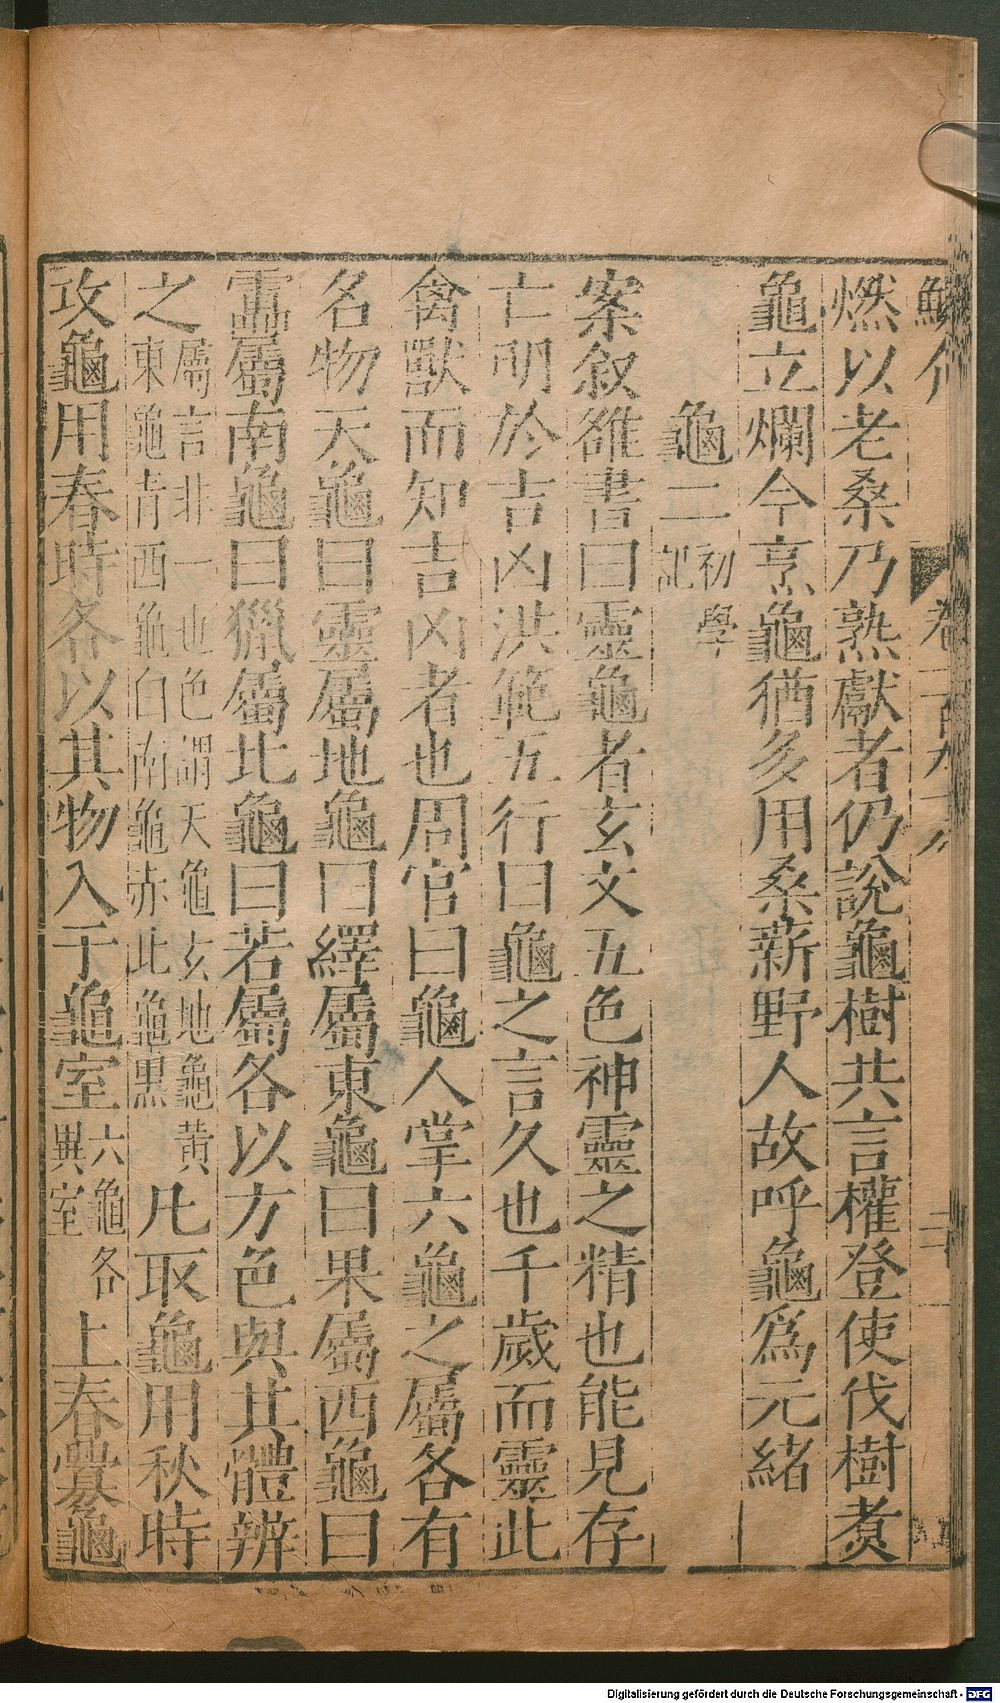 燃以老桑乃熟獻者仍說龜樹共言權登使伐樹煑
龜立爛今烹龜猶多用桒薪野人故呼龜爲元緒
龜二初學記
案叙雒書曰靈龜者玄文五色神靈之精也能見存
亡明於吉凶洪範五行曰龜之言久也千歲而靈此
禽獸而知吉凶者也周官曰龜人掌六龜之屬各有
名物天龜曰靈屬地龜曰繹屬東龜曰果屬西龜曰
靁屬南龜曰獵屬北龜曰若屬各以方色與其體辨
之屬言非一也色謂天龜玄地龜黄東龜青西龜白南龜赤北龜黒凡取龜用秋時
攻龜用春時各以其物入于龜室六龜各異室上春釁龜
Digitalisierung gefördert durch die Deutsche Forschungsgemeinschaft - DFG